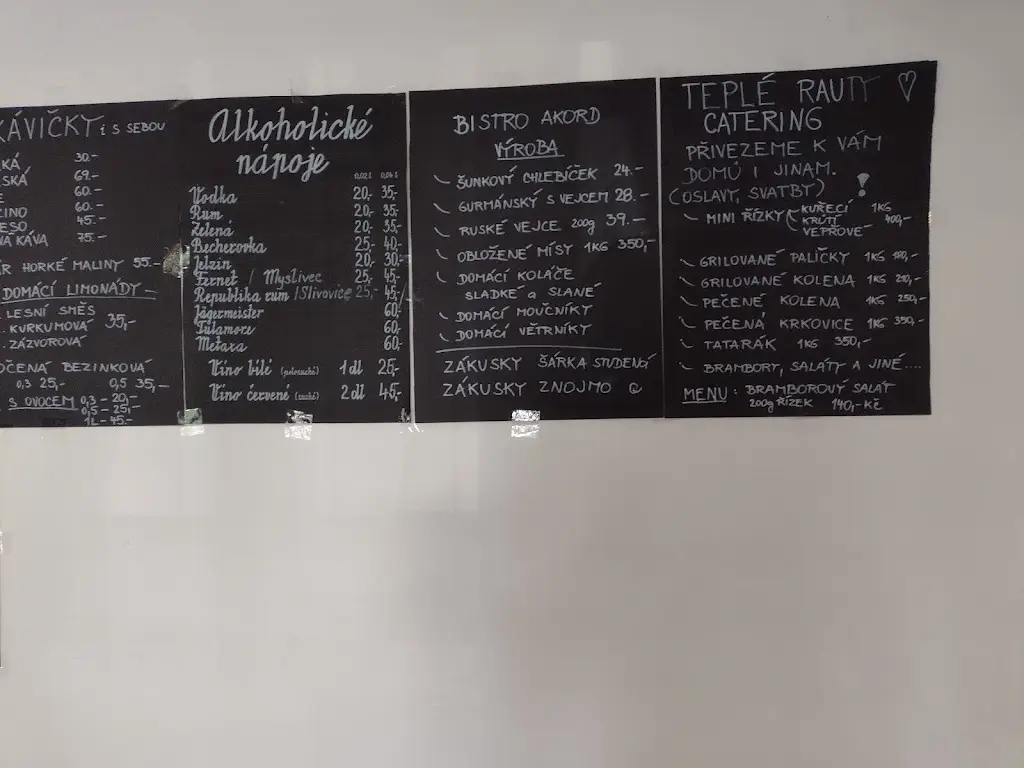 KÁVIČKY i S SEBOU
30.-
69.-
60.-
60.-
45.-
KÁVA 75.-
HORKÉ MALINY 55.-
DOMÁCÍ LIMONÁDY
LESNÍ SMĚS
KURKUMOVÁ 35,-
ZÁZVOROVÁ
BEZINKOVÁ
0,3 25,- 0,5 35,-
S OVOCEM 0,3 - 20,-
0,5 - 25,-
1L - 45.-
Alkoholické
nápoje
0,02 l 0,04 l
Vodka 20,- 35,-
Rum 20,- 35,-
Zelená 20,- 35,-
Becherovka 25,- 40,-
Jelzin 20,- 30,-
Fernet / Myslivec 25,- 45,-
Republika rum / Slivovice 25,- 45,-
Jägermeister 60,-
Tulamore 60,-
Metaxa 60,-
Víno bílé (polosuché) 1 dl 25,-
Víno červené (suché) 2 dl 45,-
BISTRO AKORD
VÝROBA
ŠUNKOVÝ CHLEBÍČEK 24.-
GURMÁNSKÝ S VEJCEM 28.-
RUSKÉ VEJCE 200g 39.-
OBLOŽENÉ MÍSY 1KG 350,-
DOMÁCÍ KOLÁČE
SLADKÉ a SLANÉ
DOMÁCÍ MOUČNÍKY
DOMÁCÍ VĚTRNÍKY
ZÁKUSKY ŠÁRKA STUDENÁ
ZÁKUSKY ZNOJMO
TEPLÉ RAUTY ♡
CATERING
PŘIVEZEME K VÁM
DOMŮ I JINAM.
(OSLAVY, SVATBY) !
MINI ŘÍZKY KUŘECÍ 1KG
KRŮTÍ 400,-
VEPŘOVÉ
GRILOVANÉ PALIČKY 1KG
GRILOVANÉ KOLENA 1KG 210,-
PEČENÉ KOLENA 1KG 250,-
PEČENÁ KRKOVICE 1KG 350,-
TATARÁK 1KG 350,-
BRAMBORY, SALÁTY A JINÉ....
MENU : BRAMBOROVÝ SALÁT
200g ŘÍZEK 140,-KČ